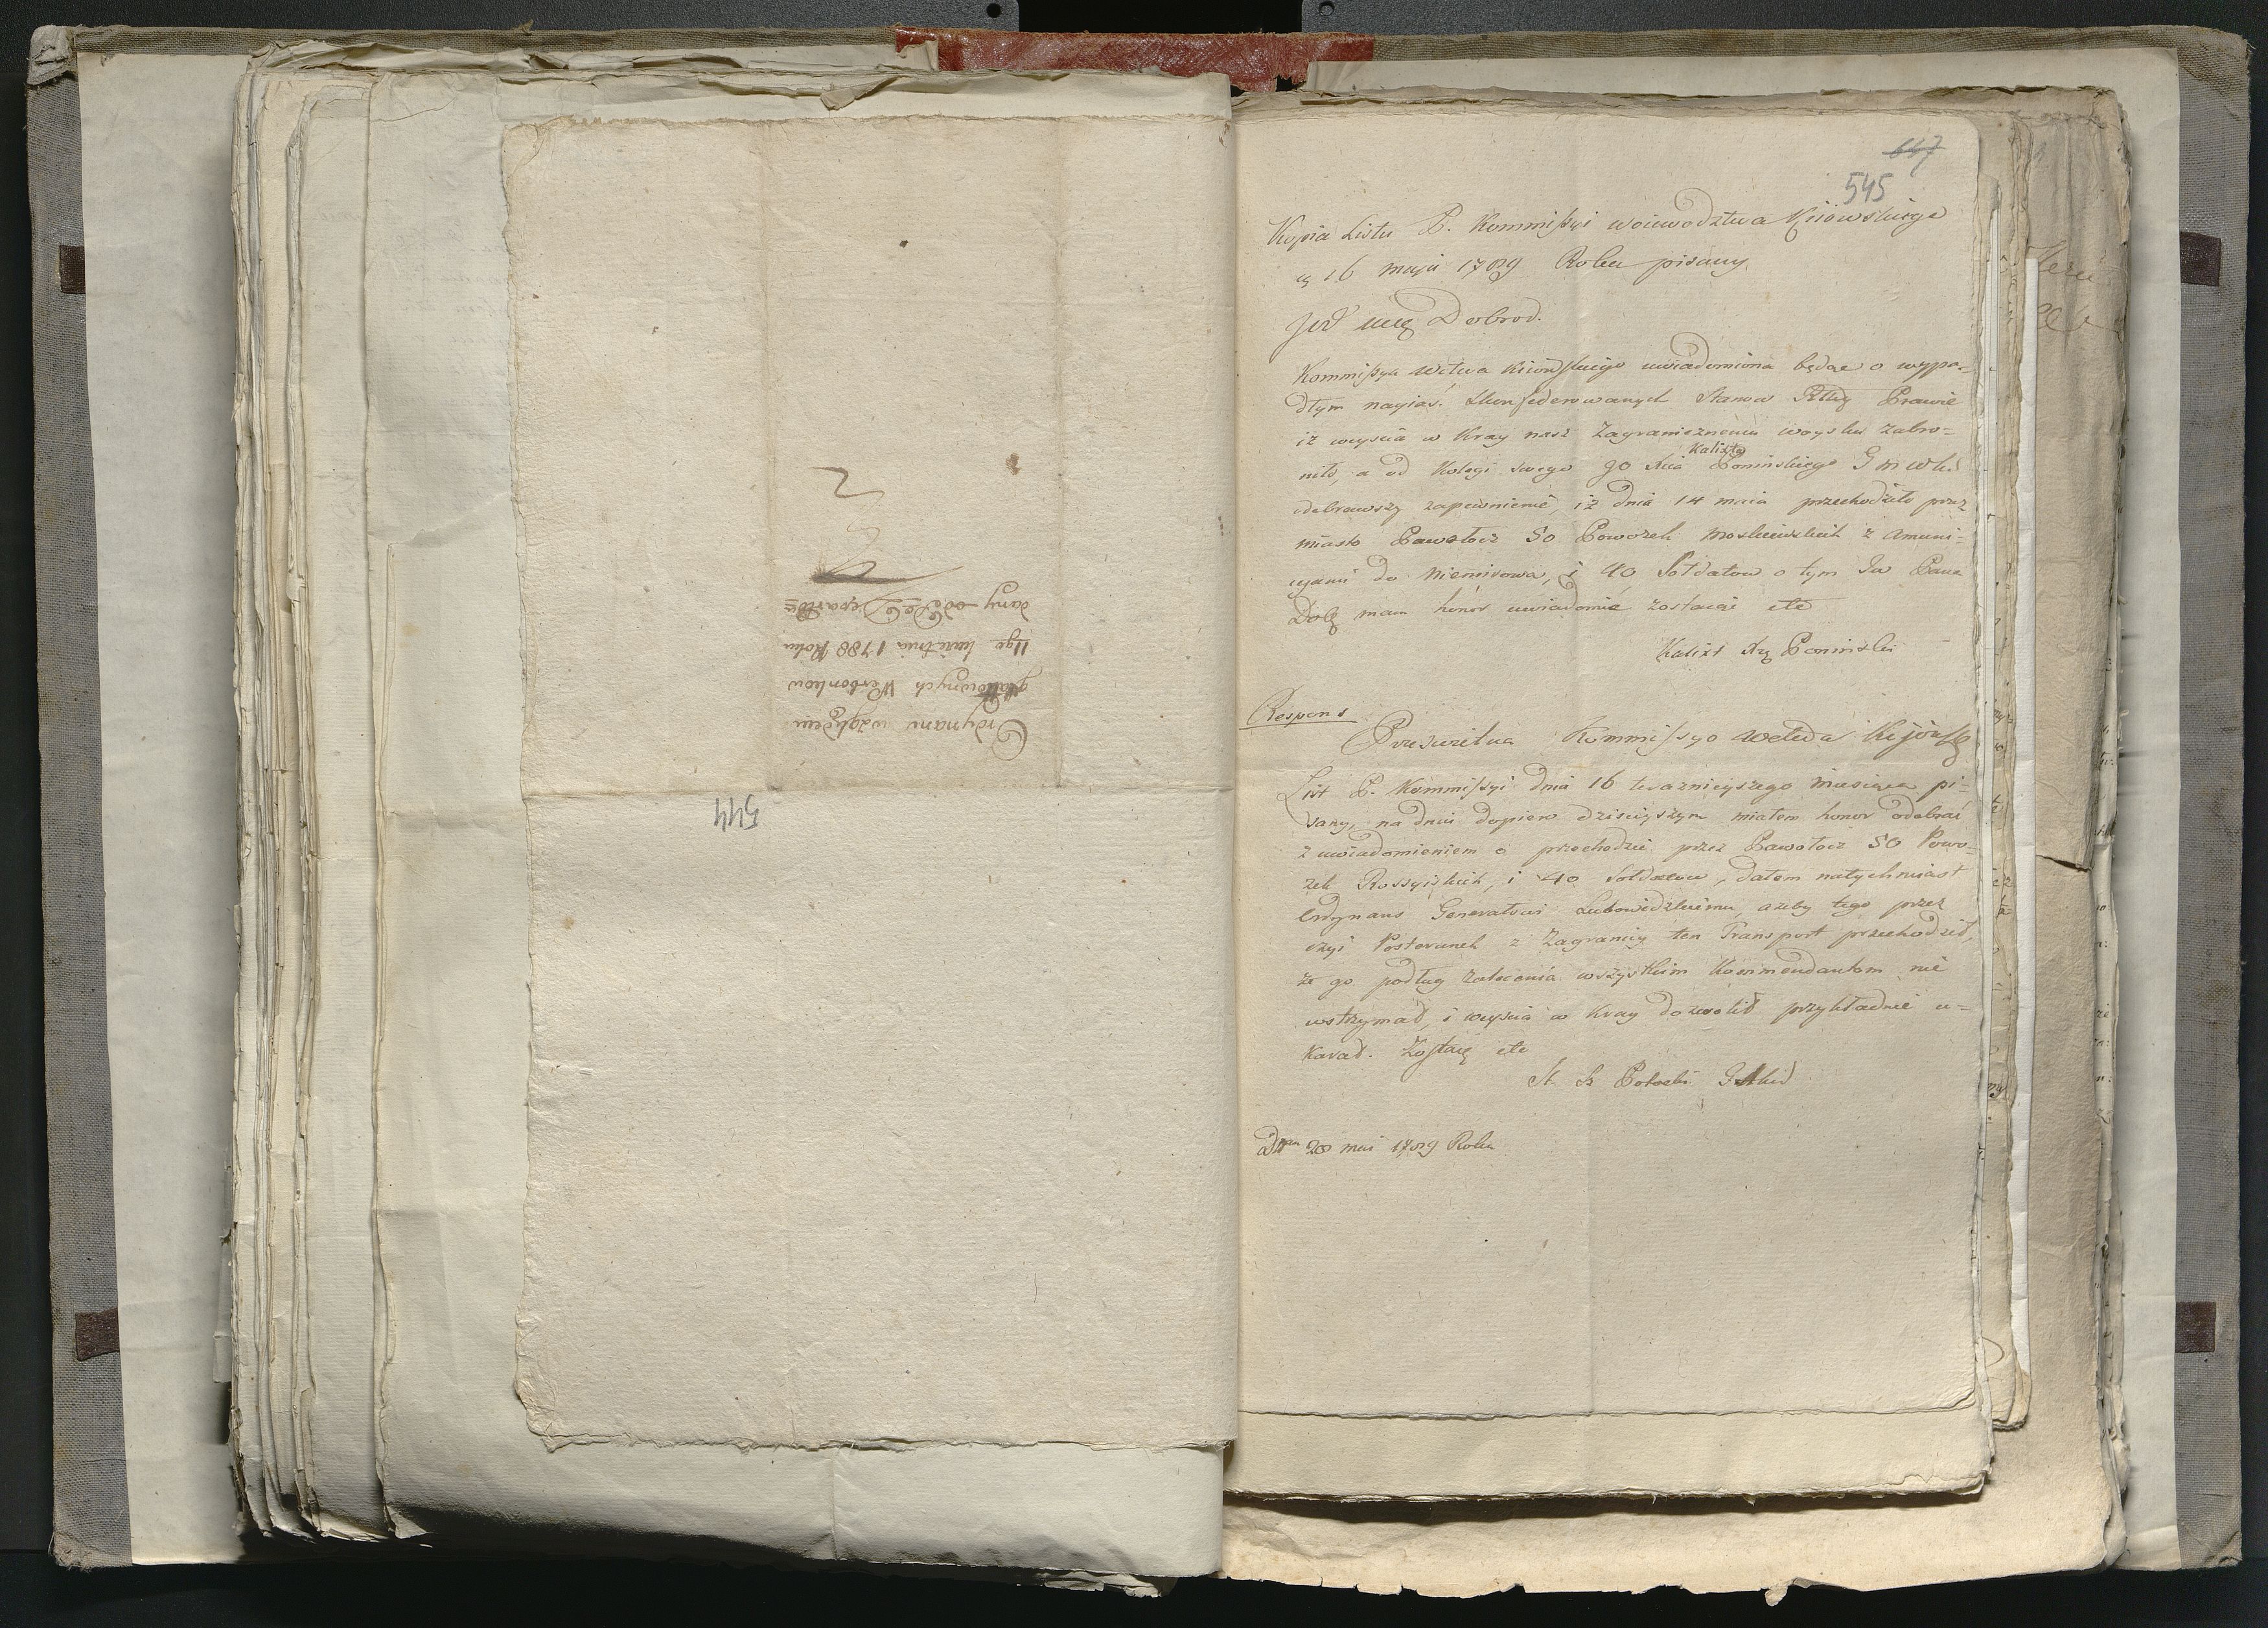 Ordynans względem
gwałtownych Werbonkow
11go kwietnia 1788 Roku
dany
544
647
545
Kopia Listu P. Kommissyi woiewodztwa Kijowskiego
16 maja 1789 Roku pisany
Dobrod.
Kommissya Wctwa Kiiowskiego uwiadomiona będąc o wypa-
dłym nayias. Skonfederowanych Stanow Prawie
iż weyscia w Kray nasz Zagranicznemu woysku zabro-
niło, a od Kolegi swego go Kalixta Poninskiego
odebrawszy zapewnienie, iż dnia 14 maia przechodziło przez
miasto Pawołocz 50 Powozek moskiewskich z Amuni-
cyami do Niemirowa, i 40 Sołdatow o tym Ja Pana
Dobę mam honor uwiadomić zostaiąc etc
Kalixt Xżę Poninski
Respons
Prześwietna Kommissyo Kijows
List P. Kommissyi dnia 16 teraznieyszego miesiąca pi-
sany, na dniu dopiero dzisieyszym miałem honor odebrać
z uwiadomieniem o przechodzie przez Pawołocz 50 Powo-
zek Rossyiskich, i 40 Sołdatow, dałem natychmiast
Ordynans Generałowi Lubowidzkiemu, ażeby tego przez
czyi Posterunek z Zagranicy ten Transport przechodził,
że go podług zalecenia wszystkim Kommendantom nie
wstrzymał, i weyscia w Kray dozwolił przykładnie u-
karał. Zostaię etc
St Sz Potocki
20 maii 1789 Roku